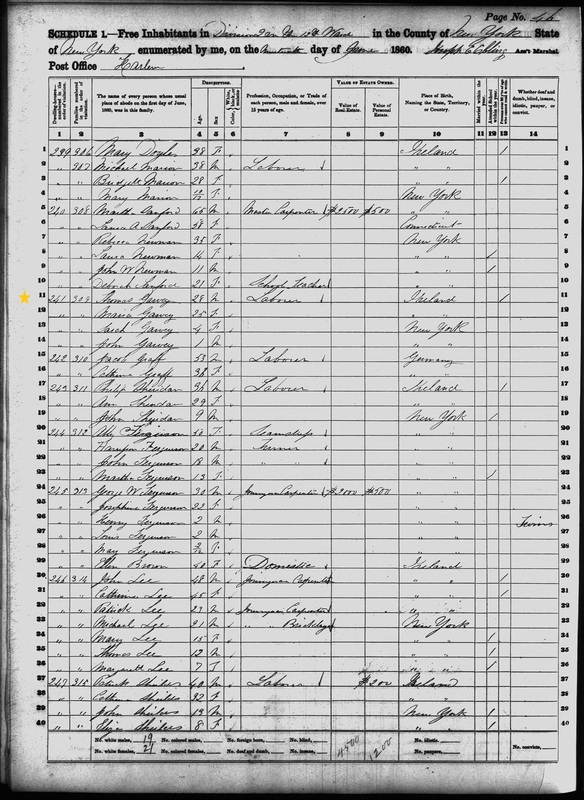 Page No. 46
SCHEDULE 1.—Free Inhabitants in Division 2 in the 12th Ward in the County of New York State
of New York enumerated by me, on the day of June 1860. Joseph E Ebling Ass't Marshal.
Post Office Harlem
DESCRIPTION. VALUE OF ESTATE OWNED.
The name of every person whose usual place of abode on the first day of June, 1860, was in this family. Age. Sex. Profession, Occupation, or Trade of each person, male and female, over 15 years of age. Value of Real Estate. Value of Personal Estate. Place of Birth, Naming the State, Territory, or Country. Whether deaf and dumb, blind, insane, idiotic, pauper, or convict.
1 2 3 4 5 6 7 8 9 10 11 12 13 14
1 239 306 Mary Doyle 38 F Ireland 1
2 " 307 Michael Marion 38 M Laborer " "
3 " " Bridget Marion 28 F " " 1
4 " " Mary Marion F New York
5 240 308 Sanford 65 M Master Carpenter $2500 $500 " "
6 " " Laura A Sanford 58 F Connecticut
7 " " Rebecca Newman 35 F New York
8 " " Laura Newman 14 F " " 1
9 " " John W Newman 11 M " " 1
10 " " Deborah Sanford 21 F School Teacher " "
11 241 309 Thomas Garvey 28 M Laborer Ireland 1
12 " " Maria Garvey 25 F " "
13 " " Sarah Garvey 4 F New York
14 " " John Garvey 1 M " "
15 242 310 Jacob Graff 53 M Laborer Germany
16 " " Graff 38 F " "
17 243 311 Philip Sheridan 36 M Laborer Ireland 1
18 " " Ann Sheridan 29 F " "
19 " " John Sheridan 9 M New York 1
20 244 312 Ferguson 58 F Seamstress " "
21 " " Harrison Ferguson 20 M Farmer " "
22 " " John Ferguson 18 M " " " "
23 " " Martha Ferguson 13 F " " 1
24 245 313 George W Ferguson 30 M Journeyman Carpenter $2000 $500 " "
25 " " Josephine Ferguson 23 F " "
26 " " Henry Ferguson 2 M " " Twins
27 " " Louis Ferguson 2 M " "
28 " " Mary Ferguson F " "
29 " " Ellen Brown 40 F Domestic Ireland
30 246 314 John Lee 48 M Journeyman Carpenter " " 1
31 " " Catherine Lee 45 F " " 1
32 " " Patrick Lee 23 M Journeyman Carpenter " "
33 " " Michael Lee 21 M " Bricklayer New York
34 " " Mary Lee 15 F " " 1
35 " " Thomas Lee 12 M " " 1
36 " " Margarett Lee 7 F " " 1
37 247 315 Patrick 40 M Laborer $200 Ireland
38 " " 32 F " "
39 " " John 13 M New York 1
40 " " Eliza 8 F " " 1
No. white males, 19 No. colored males, No. foreign born, No. blind, 4500 1200 No. idiotic, No. convicts,
No. white females, 21 No. colored females, No. deaf and dumb, No. insane, No. paupers,